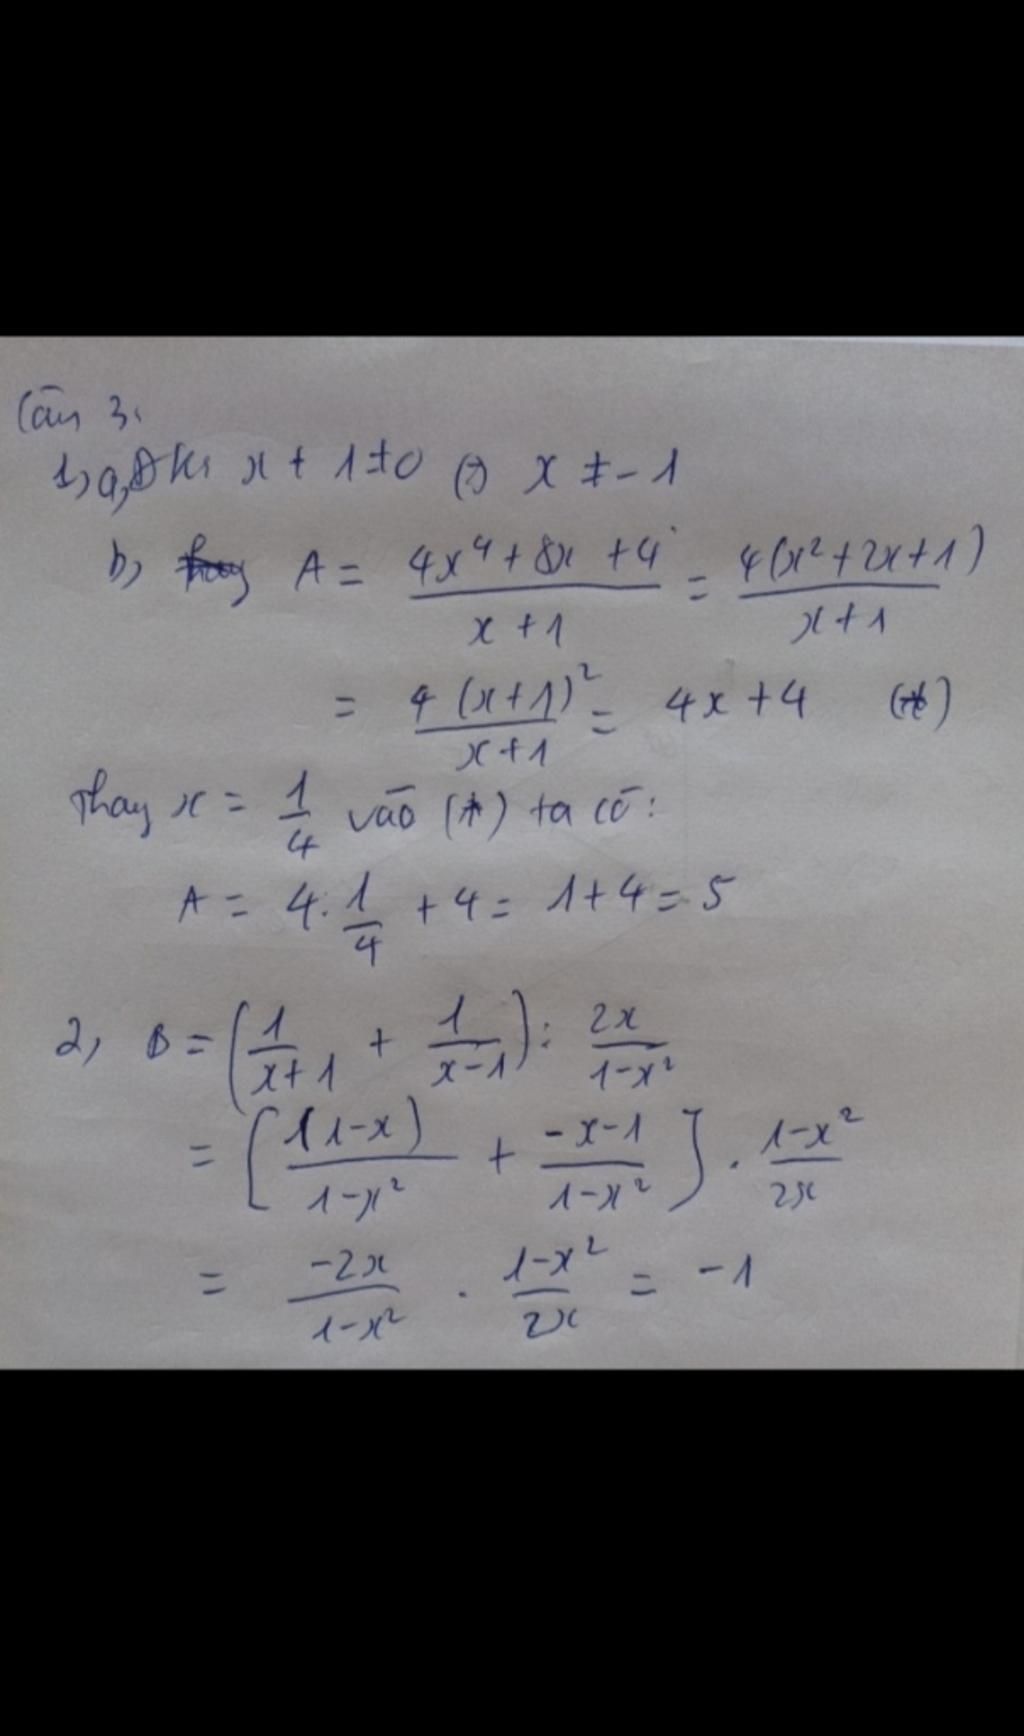 Câu 3:
1, a, Đk: x + 1 ≠ 0 (=) x ≠ -1
b, A = (4x⁴ + 8x + 4)/(x + 1) = 4(x² + 2x + 1)/(x + 1)
= 4(x+1)²/(x+1) = 4x + 4 (*)
Thay x = 1/4 vào (*) ta có:
A = 4. 1/4 + 4 = 1 + 4 = 5
2, B = (1/(x+1) + 1/(x-1)) : 2x/(1-x²)
= [1(1-x)/(1-x²) + (-x-1)/(1-x²)] . (1-x²)/2x
= -2x/(1-x²) . (1-x²)/2x = -1